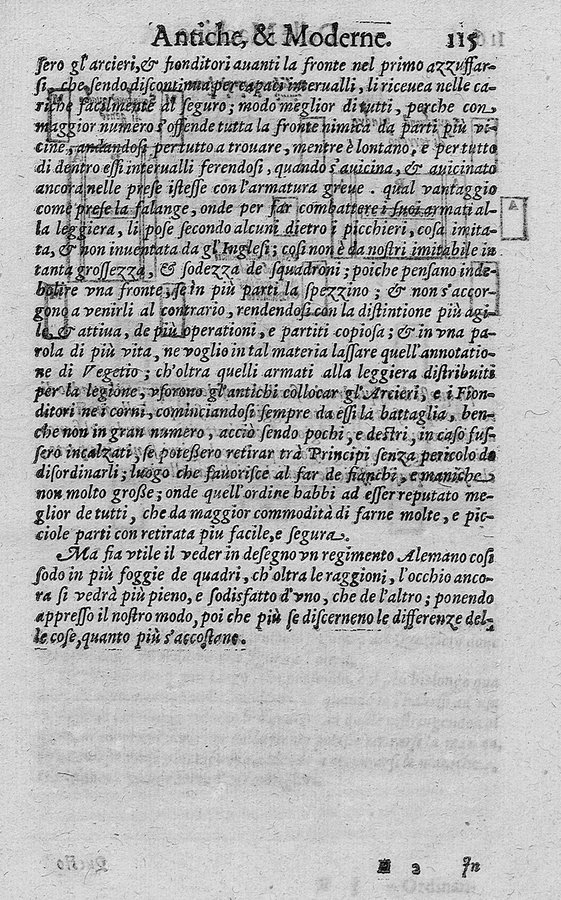 Antiche, & Moderne. 115
sero gl'arcieri, & fionditori auanti la fronte nel primo azzuffar-
si, che sendo discontinua per capaci interualli, li riceuea nelle ca-
riche facilmente al seguro; modo meglior di tutti, perche con
maggior numero s'offende tutta la fronte nimica da parti più vi-
cine, andandosi per tutto a trouare, mentre è lontano, e per tutto
di dentro essi interualli ferendosi, quando s'auicina, & auicinato
ancora nelle prese istesse con l'armatura greue. qual vantaggio
come prese la falange, onde per far combattere i suoi armati al-
la leggiera, li pose secondo alcuni dietro i picchieri, cosa imita-
ta, & non inuentata da gl'Inglesi; cosi non è da nostri imitabile in
tanta grossezza, & sodezza de squadroni; poiche pensano inde-
bolire vna fronte, se in più parti la spezzino; & non s'accor-
gono a venirli al contrario, rendendosi con la distintione più agi-
le & attiua, de più operationi, e partiti copiosa; & in vna pa-
rola di più vita, ne voglio in tal materia lassare quell'annotatio-
ne di Vegetio; ch'oltra quelli armati alla leggiera distribuiti
per la legione, vsorono gl'antichi collocar gl'Arcieri, e i Fion-
ditori ne i corni, cominciandosi sempre da essi la battaglia, ben-
che non in gran numero, acciò sendo pochi, e destri, in caso fus-
sero incalzati, se potessero retirar trà Principi senza pericolo de
disordinarli; luogo che fauorisce al far de fianchi, e maniche
non molto grosse; onde quell'ordine habbi ad esser reputato me-
glior de tutti, che da maggior commodità di farne molte, e pic-
ciole parti con retirata piu facile, e segura.
Ma fia vtile il veder in desegno vn regimento Alemano cosi
sodo in più foggie de quadri, ch'oltra le raggioni, l'occhio anco-
ra si vedrà più pieno, e sodisfatto d'vno, che de l'altro; ponendo
appresso il nostro modo, poi che più se discerneno le differenze del-
le cose, quanto più s'accostano.
H 3 In